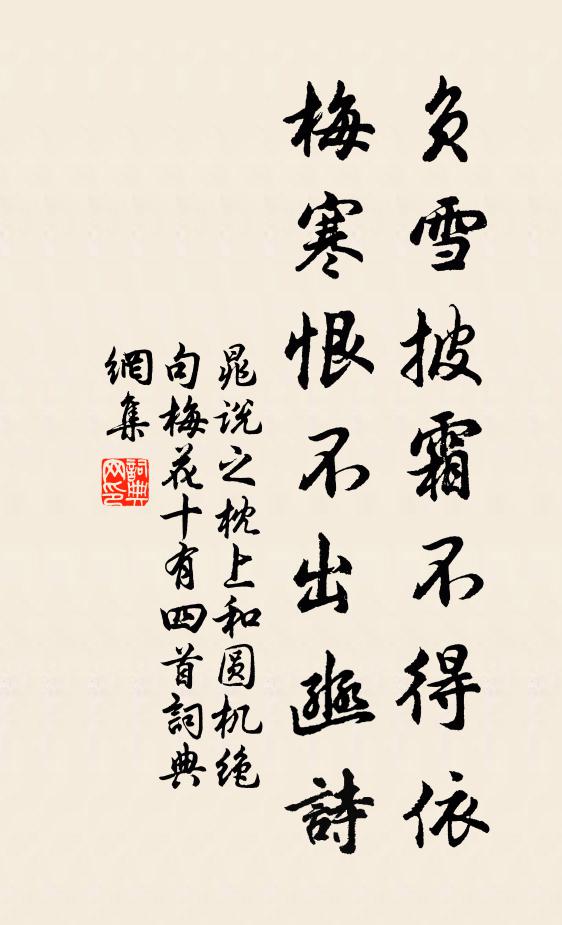 负雪披霜不得依
梅寒恨不出豳詩
晁说之枕上和圆机绝
句梅花十有四首詞典
網集
詞典网印